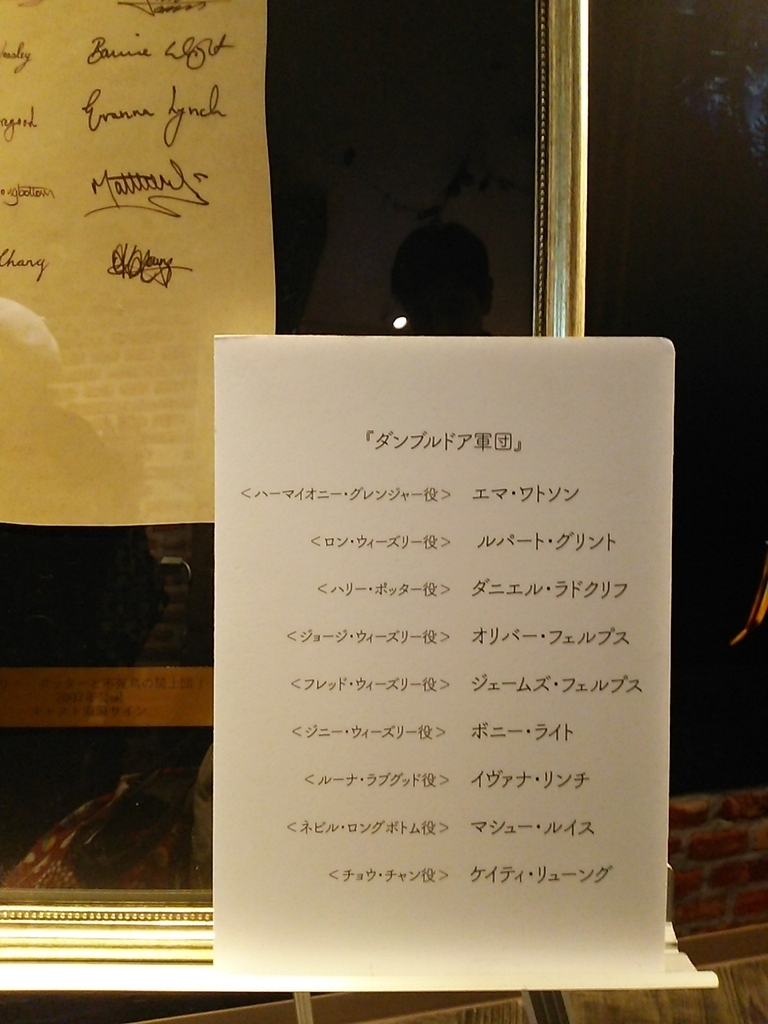 Bonnie Wright
Evanna Lynch
Chang
『ダンブルドア軍団』
<ハーマイオニー・グレンジャー役> エマ・ワトソン
<ロン・ウィーズリー役> ルパート・グリント
<ハリー・ポッター役> ダニエル・ラドクリフ
<ジョージ・ウィーズリー役> オリバー・フェルプス
<フレッド・ウィーズリー役> ジェームズ・フェルプス
<ジニー・ウィーズリー役> ボニー・ライト
<ルーナ・ラブグッド役> イヴァナ・リンチ
<ネビル・ロングボトム役> マシュー・ルイス
<チョウ・チャン役> ケイティ・リューング